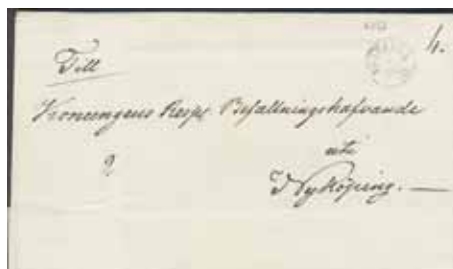 Till
Konungens Resp. Befallningshafvande
uti
Nyköping.